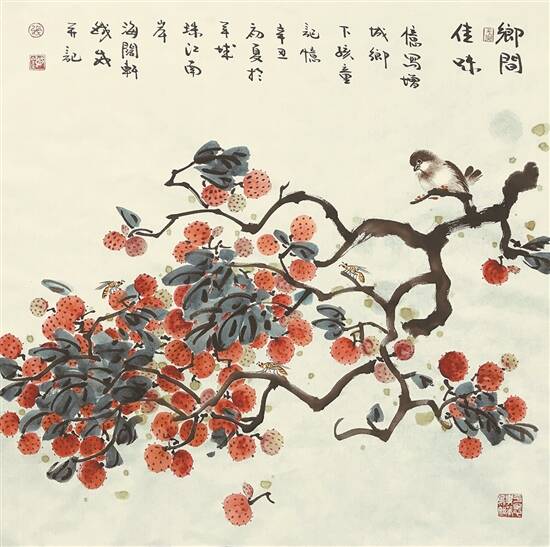 鄉間
佳味
憶寫增
城鄉
下孩童
記憶
辛丑
初夏於
羊城
珠江南
岸
海闊軒
並記